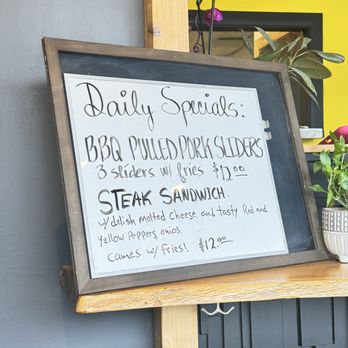 Daily Specials:
BBQ PULLED PORK SLIDERS
3 sliders w/ fries $12.00
STEAK SANDWICH
w/ delish melted cheese and tasty Red and
Yellow Peppers, onios.
Cames w/ fries! $12.00